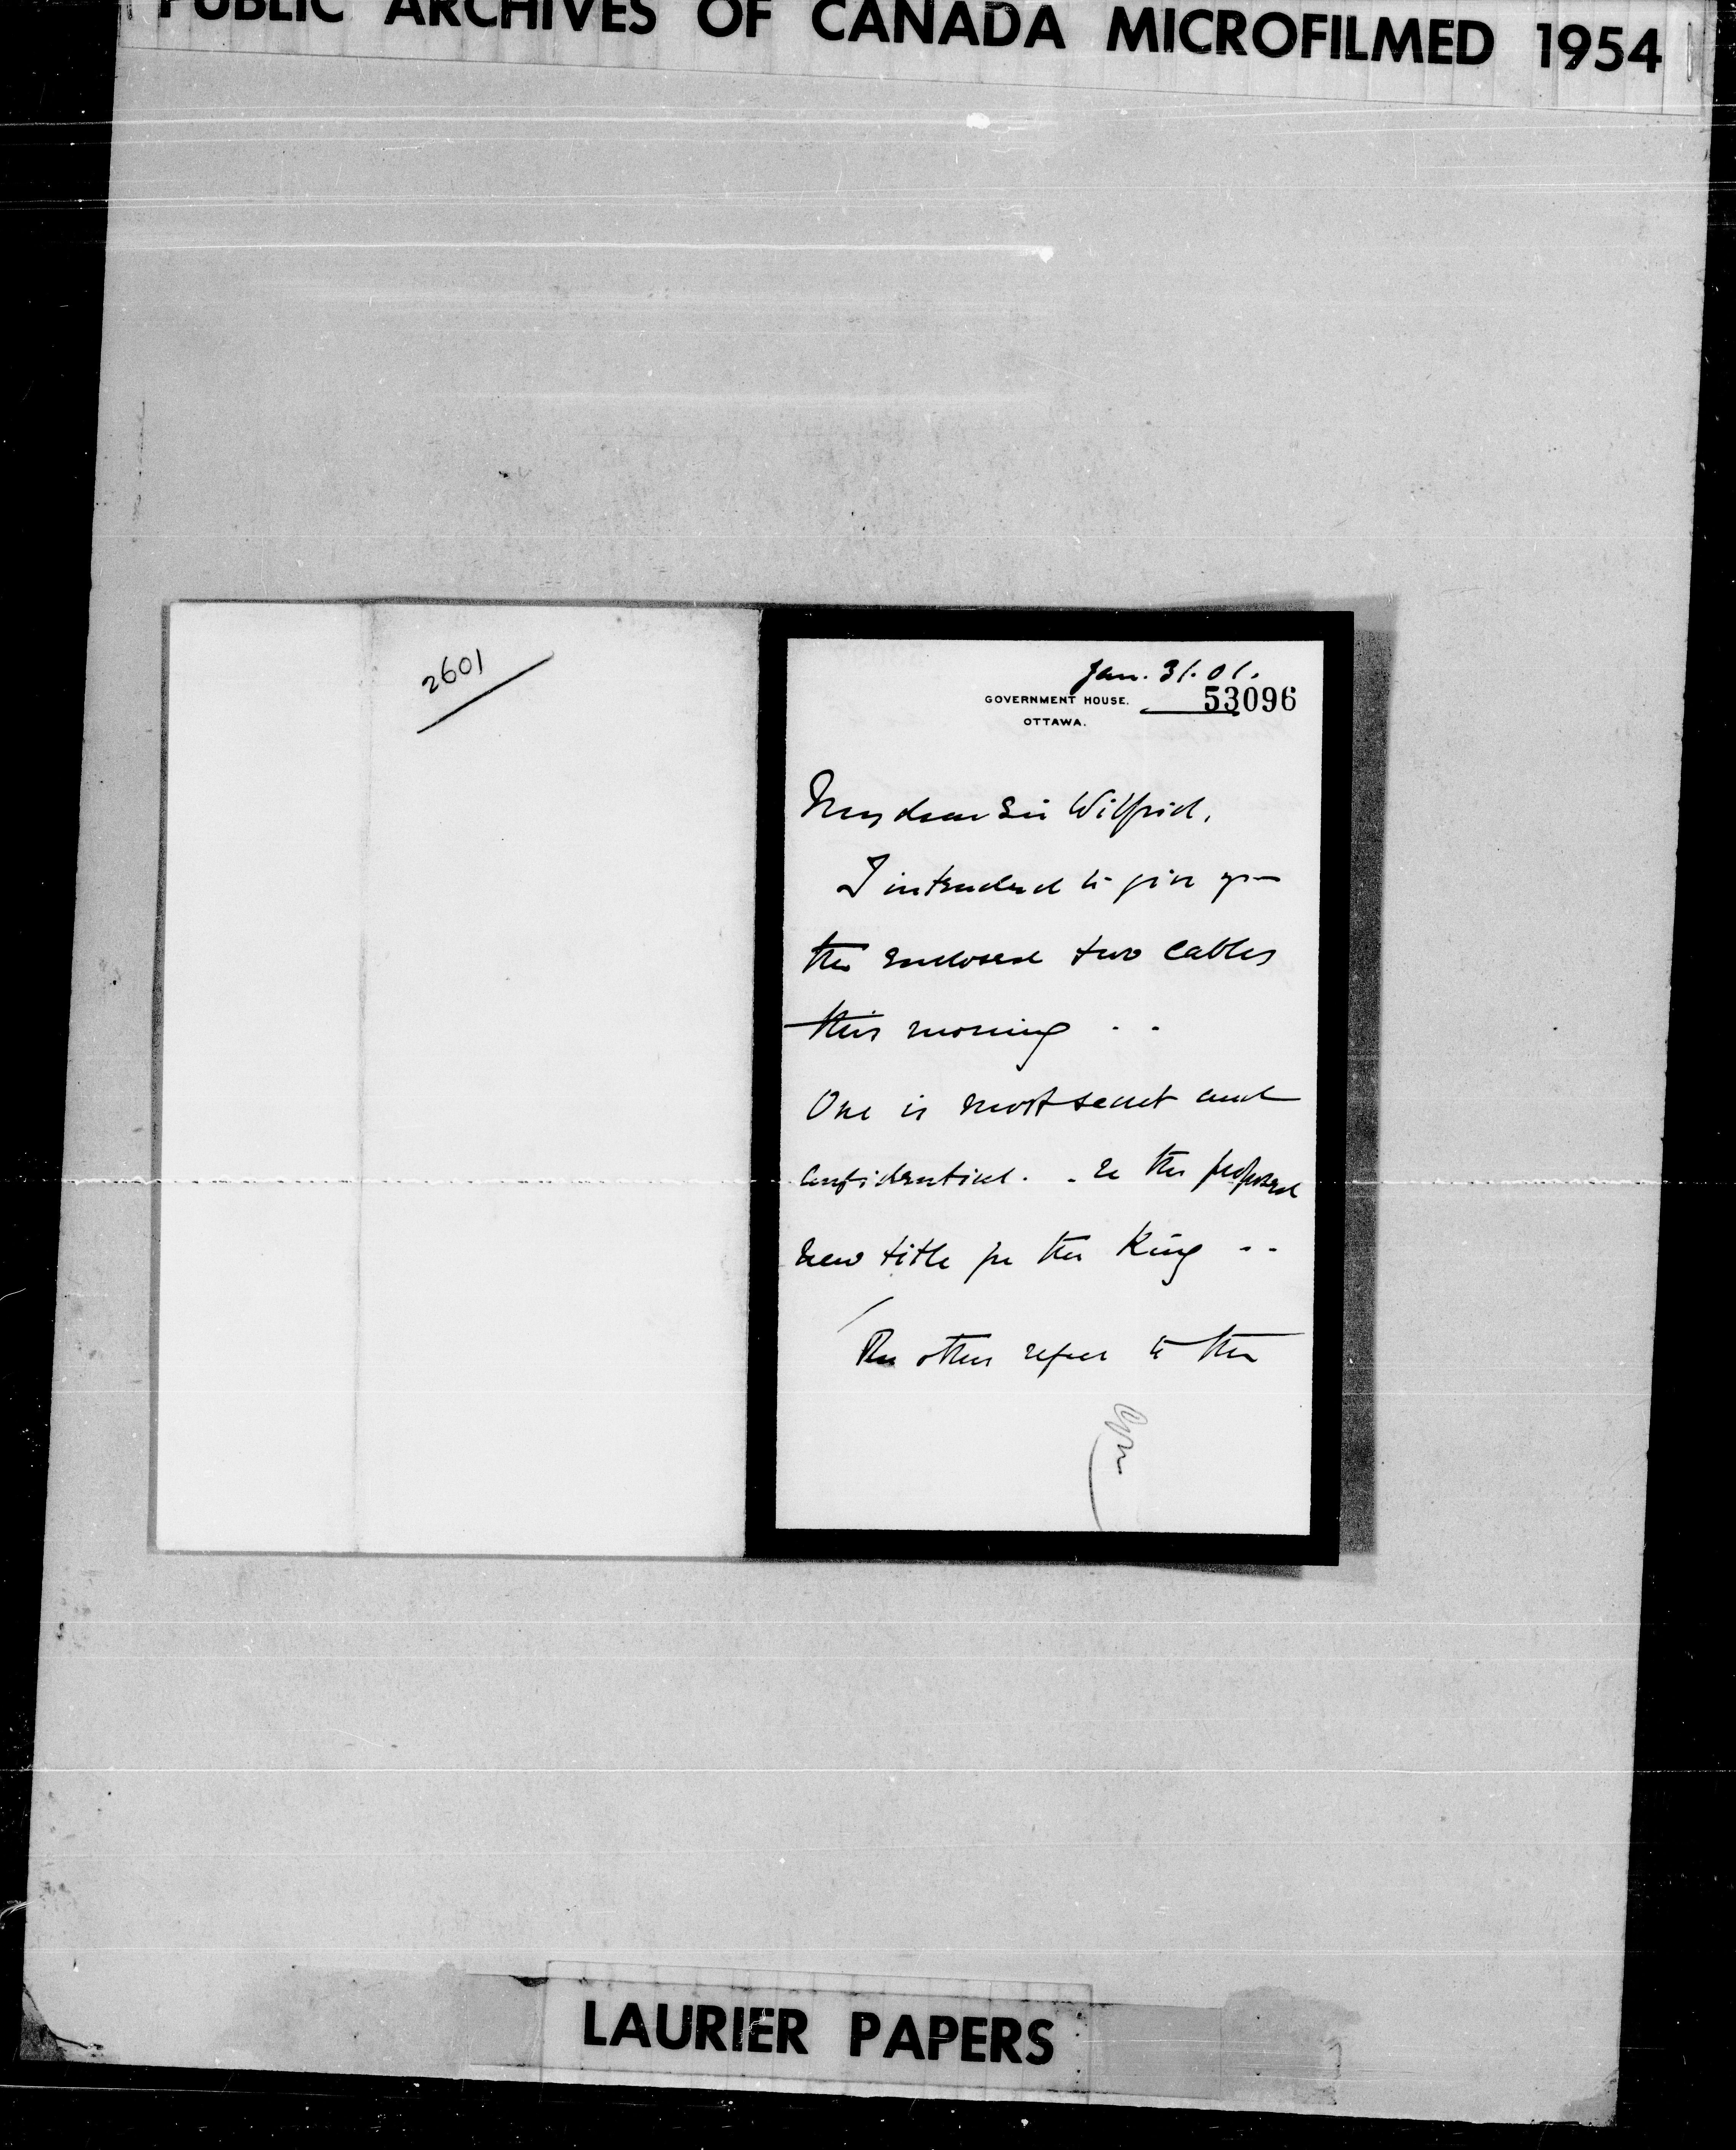 PUBLIC ARCHIVES OF CANADA MICROFILMED 1954
2601
Jan. 31. 01.
GOVERNMENT HOUSE. 53096
OTTAWA.
My dear Sir Wilfrid,
I intended to give you
the enclosed two cables
this morning . .
One is most secret and
confidential. . re the proposed
new title for the King . .
The other refers to the
LAURIER PAPERS